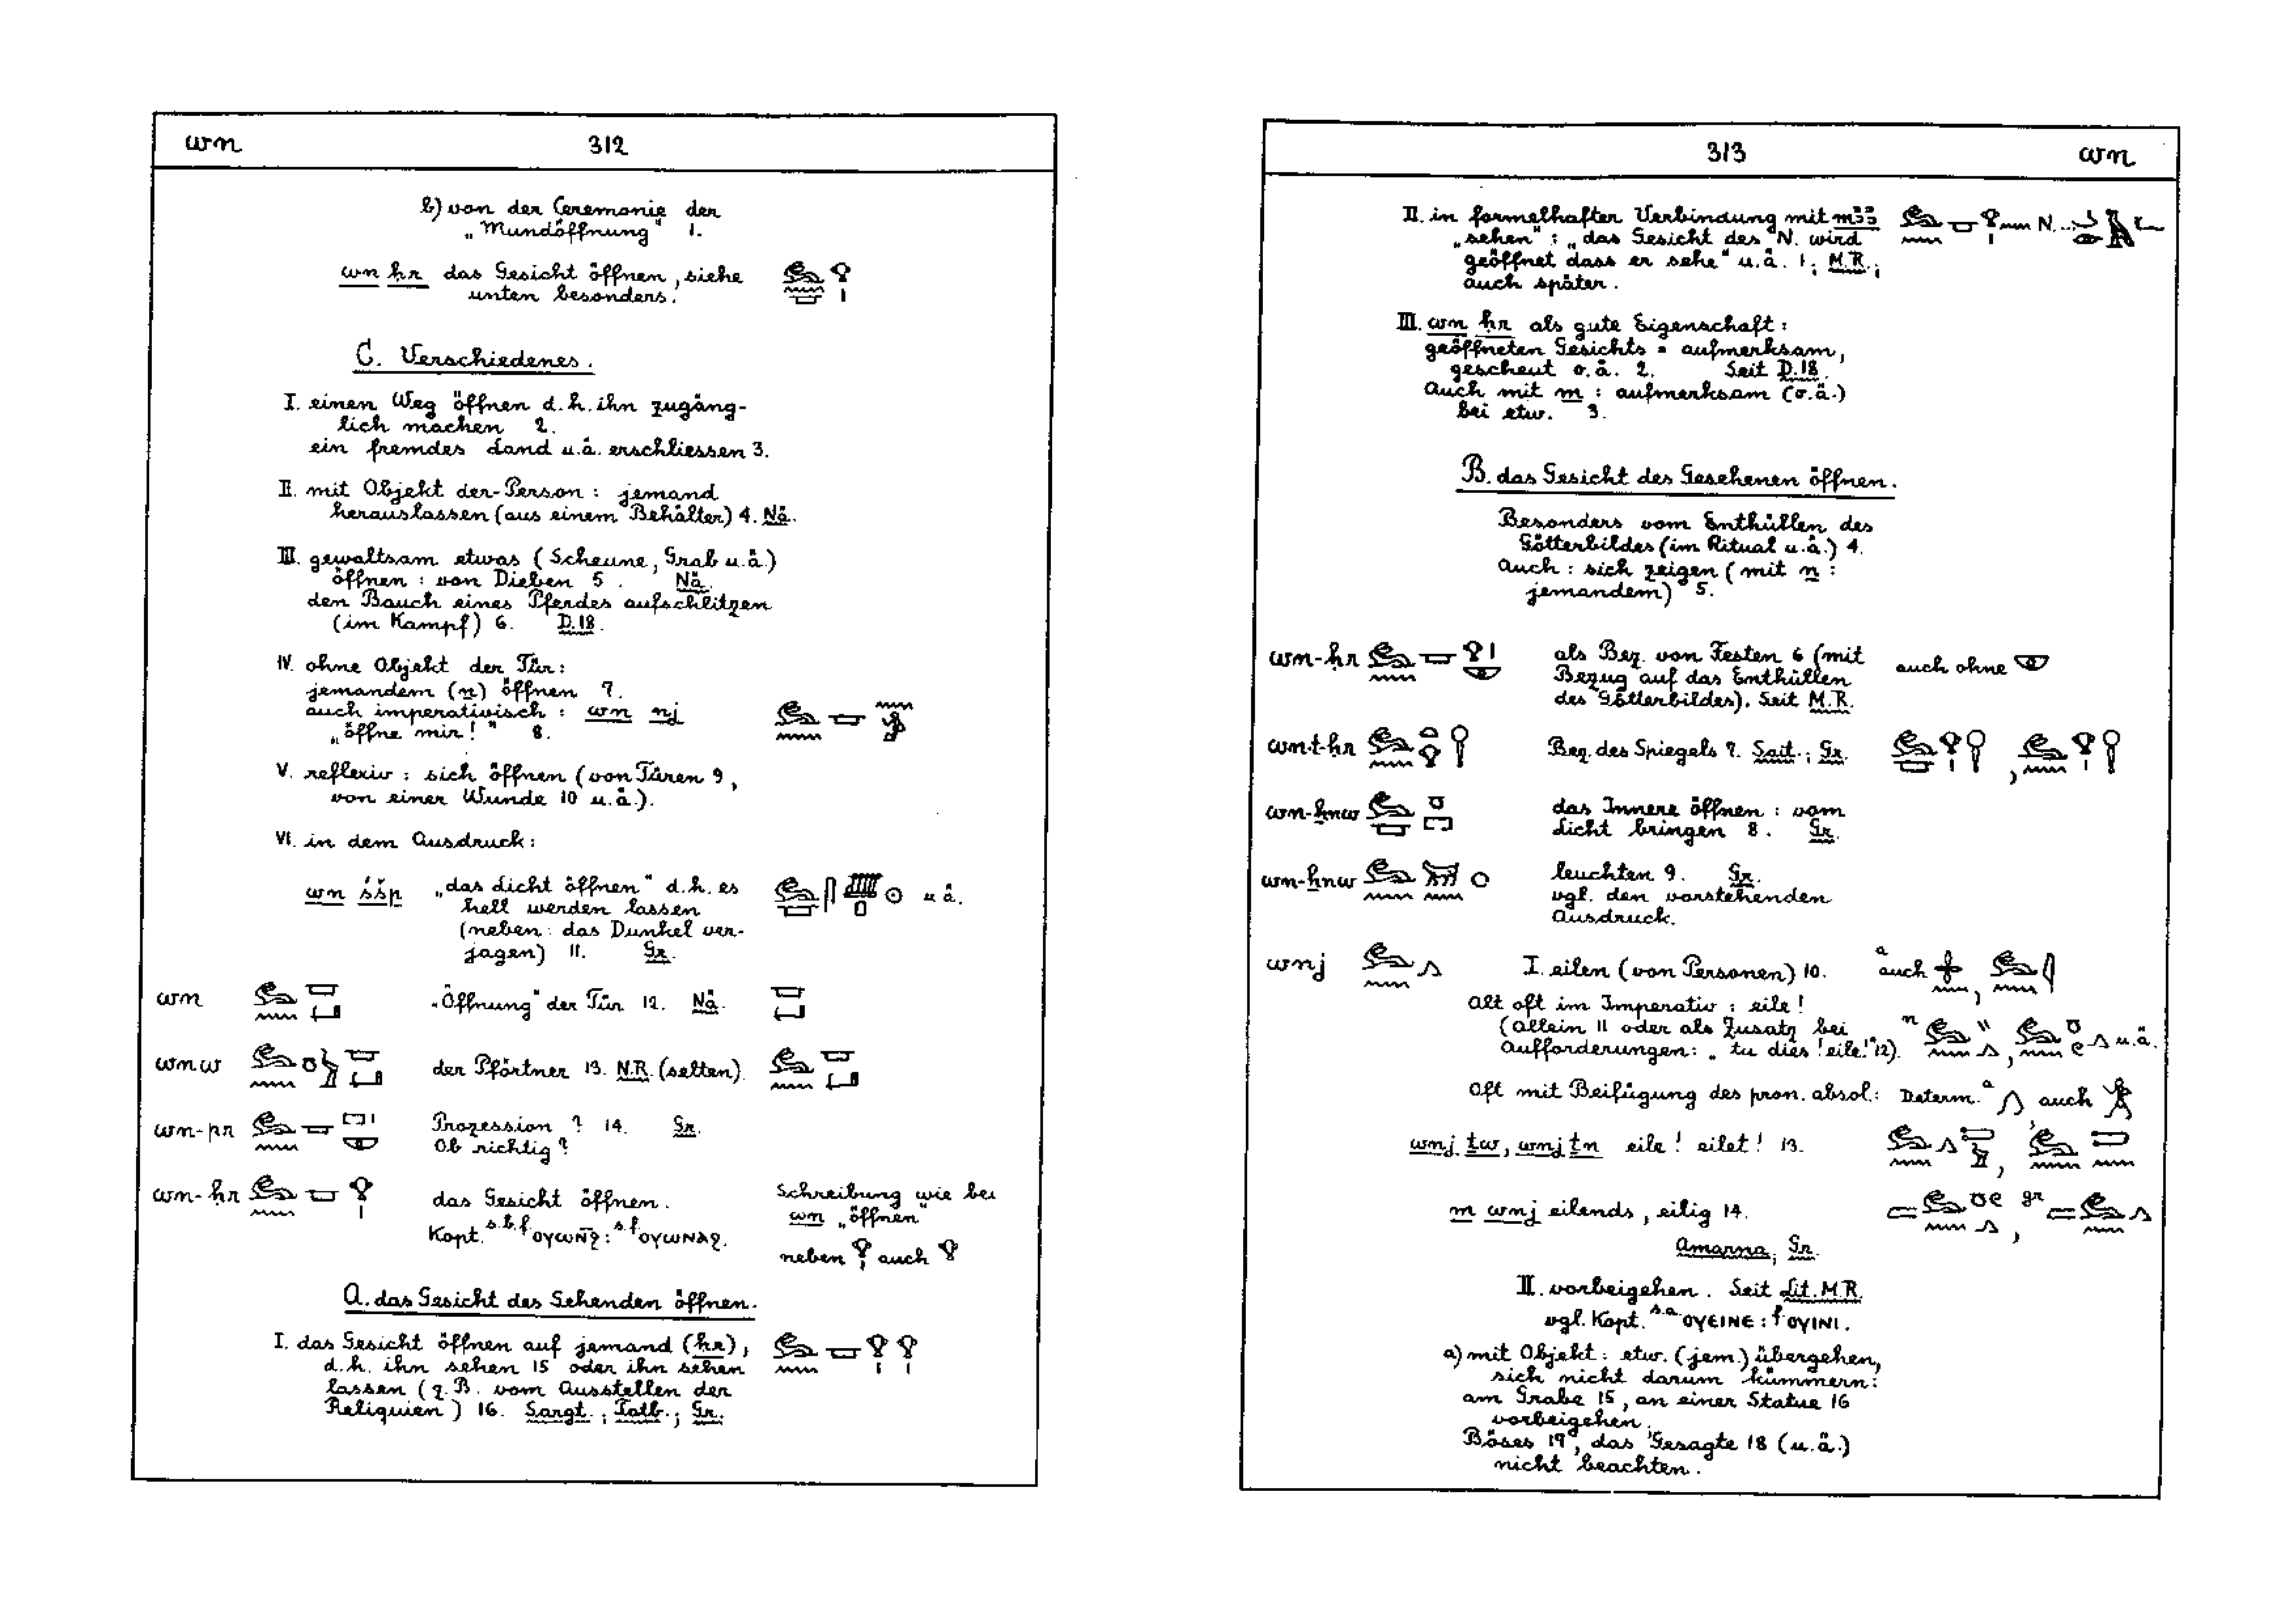 wn 312
b) von der Ceremonie der
„Mundöffnung" 1.
wn ḥr das Gesicht öffnen, siehe
unten besonders.
C. Verschiedenes.
I. einen Weg öffnen d.h. ihn zugäng-
lich machen 2.
ein fremdes Land u.ä. erschliessen 3.
II. mit Objekt der Person: jemand
herauslassen (aus einem Behälter) 4. Nä.
III. gewaltsam etwas (Scheune, Grab u.ä.)
öffnen: von Dieben 5. Nä.
den Bauch eines Pferdes aufschlitzen
(im Kampf) 6. D.18.
IV. ohne Objekt der Tür:
jemandem (n) öffnen 7.
auch imperativisch: wn nj
„öffne mir!" 8.
V. reflexiv: sich öffnen (von Türen 9,
von einer Wunde 10 u.ä.).
VI. in dem Ausdruck:
wn śšp „das Licht öffnen" d.h. es u.ä.
hell werden lassen
(neben: das Dunkel ver-
jagen) 11. Gr.
wn „Öffnung" der Tür 12. Nä.
wnw der Pförtner 13. N.R. (selten).
wn-pr Prozession? 14. Gr.
Ob richtig?
wn-ḥr das Gesicht öffnen. Schreibung wie bei
wn „öffnen"
Kopt. s.b.f. ⲟⲩⲱⲛ̄ϩ: s.f. ⲟⲩⲱⲛⲁϩ.
neben auch
A. das Gesicht des Sehenden öffnen.
I. das Gesicht öffnen auf jemand (ḥr),
d.h. ihn sehen 15 oder ihn sehen
lassen (z.B. vom Ausstellen der
Reliquien) 16. Sargt.; Totb.; Gr.
313 wn
II. in formelhafter Verbindung mit mꜣꜣ N...
„sehen": „das Gesicht des N. wird
geöffnet dass er sehe" u.ä. 1; M.R.;
auch später.
III. wn ḥr als gute Eigenschaft:
geöffneten Gesichts = aufmerksam,
gescheut o.ä. 2. Seit D.18.
Auch mit m: aufmerksam (o.ä.)
bei etw. 3.
B. das Gesicht des Gesehenen öffnen.
Besonders vom Enthüllen des
Götterbildes (im Ritual u.ä.) 4.
Auch: sich zeigen (mit n:
jemandem) 5.
wn-ḥr als Bez. von Festen 6 (mit auch ohne
Bezug auf das Enthüllen
des Götterbildes). Seit M.R.
wn.t-ḥr Bez. des Spiegels 7. Sait.; Gr.
wn-ẖnw das Innere öffnen: vom
Licht bringen 8. Gr.
wn-ẖnw leuchten 9. Gr.
vgl. den vorstehenden
Ausdruck.
wnj I. eilen (von Personen) 10. a auch
Alt oft im Imperativ: eile!
(allein 11 oder als Zusatz bei n u.ä.
Aufforderungen: „tu dies! eile!" 12).
Oft mit Beifügung des pron. absol.: Determ. a auch
wnj ṯw, wnj ṯn eile! eilet! 13.
m wnj eilends, eilig 14. gr
Amarna; Gr.
II. vorbeigehen. Seit Lit. M.R.
vgl. Kopt. s.a. ⲟⲩⲉⲓⲛⲉ: f ⲟⲩⲓⲛⲓ.
a) mit Objekt: etw. (jem.) übergehen,
sich nicht darum kümmern:
am Grabe 15, an einer Statue 16
vorbeigehen.
Böses 19, das Gesagte 18 (u.ä.)
nicht beachten.